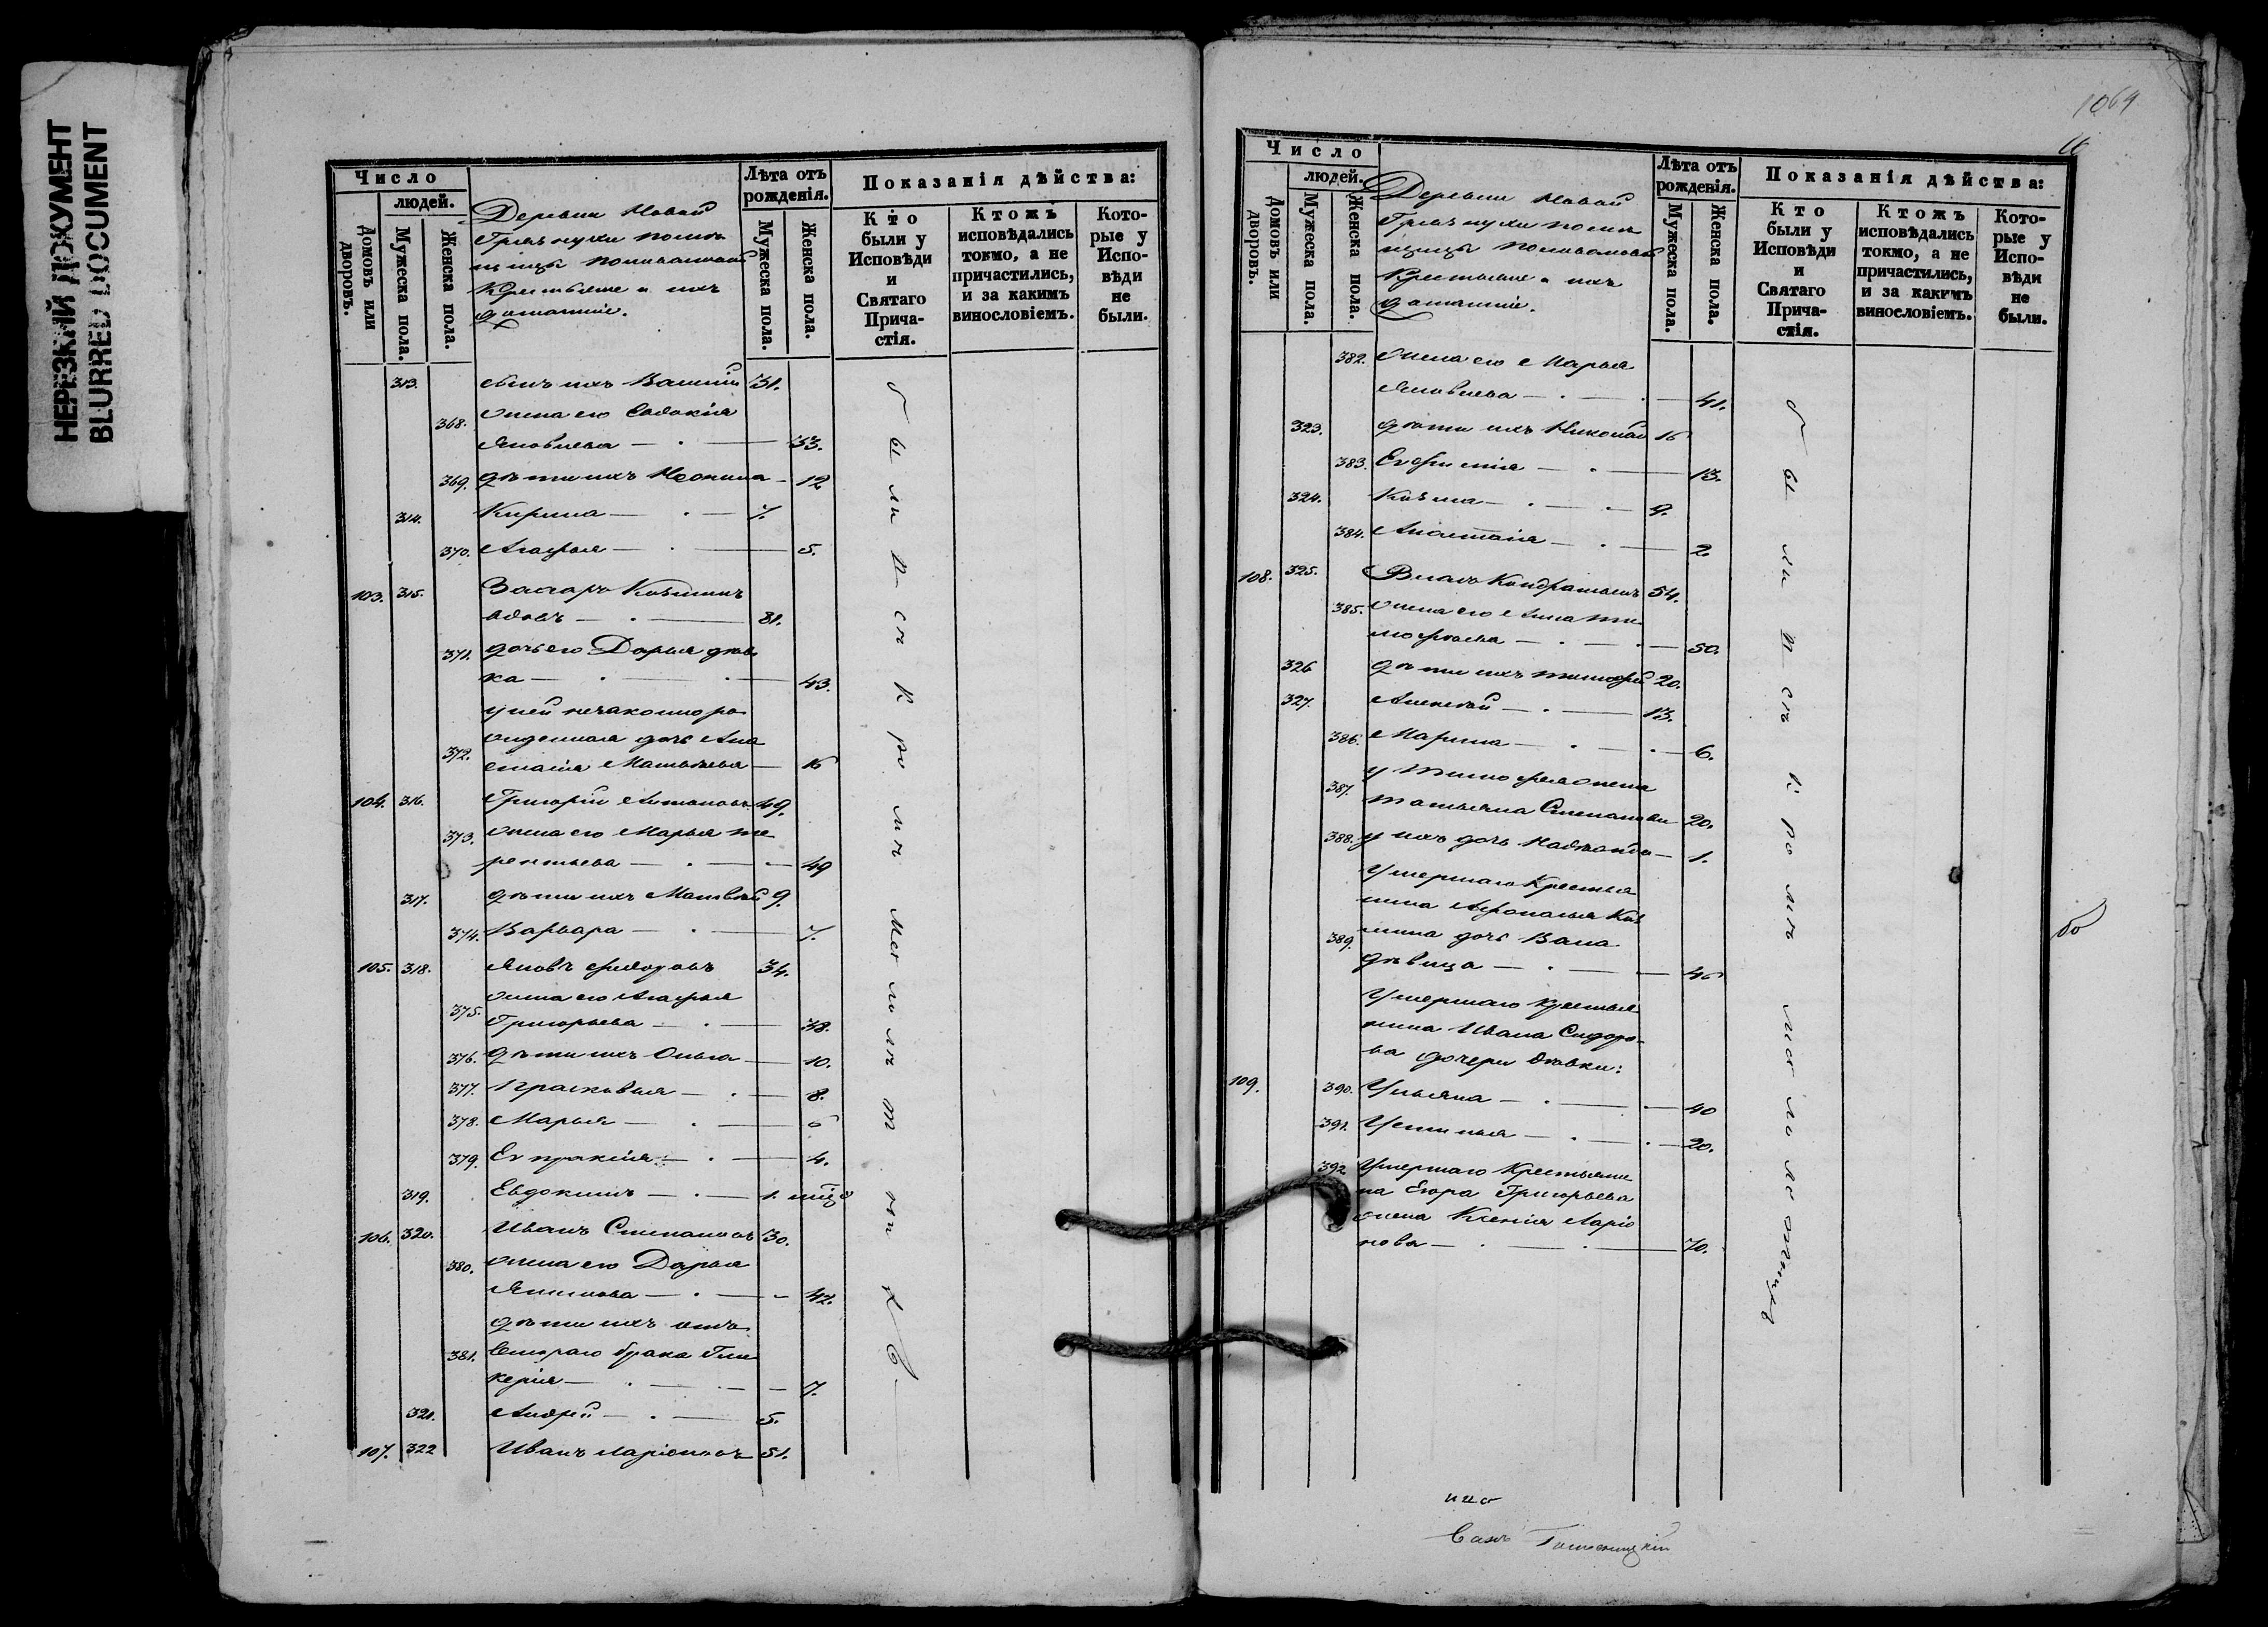 НЕРЕЗКИЙ ДОКУМЕНТ
BLURRED DOCUMENT
Число
людей.
Домовъ или дворовъ.
Мужеска пола.
Женска пола.
Деревни Новой
помѣ
щицы
Крестьяне и ихъ
домашніе.
Лѣта отъ
рожденія.
Мужеска пола.
Женска пола.
Показанія дѣйства:
Кто
были у
Исповѣди
и
Святаго
Прича-
стія.
Ктожъ
исповѣдались
токмо, а не
причастились,
и за какимъ
винословіемъ.
Кото-
рые у
Испо-
вѣди
не
были.
313. сынъ ихъ Василій 31.
368. жена его Евдокія
Яковлева — 33.
369. дѣти ихъ — 12
314. Кирила — 7.
370. Агафья — 5.
103. 315. Захаръ Козминъ
вдовъ — 81.
371. дочь его Дарья дѣв
ка — 43.
у ней незаконноро
372. жденная дочь Ана
стасія Матвѣева — 16
104. 316. Григорій Антоновъ 49.
373. жена его Марья Те
рентьева — 49
317. дѣти ихъ Матвѣй 9.
374. Варвара — 7.
105. 318. Яковъ Федоровъ 34.
375. жена его Агафья
Григорьева — 38.
376. дѣти ихъ Ольга — 10.
377. Прасковья — 8.
378. Марья — 6
379. Евпраксія — 4.
319. Евдокимъ — 1.
106. 320. Иванъ Степановъ 30.
380. жена его Дарья
Якимова — 42.
дѣти ихъ отъ
381. втораго брака Гли
керія — 7.
321. Андрей — 5.
107. 322 Иванъ Ларіоновъ 51.
были всѣ кромѣ малолѣтнихъ
1064
Число
людей.
Домовъ или дворовъ.
Мужеска пола.
Женска пола.
Деревни Новой
помѣ
щицы
Крестьяне и ихъ
домашніе.
Лѣта отъ
рожденія.
Мужеска пола.
Женска пола.
Показанія дѣйства:
Кто
были у
Исповѣди
и
Святаго
Прича-
стія.
Ктожъ
исповѣдались
токмо, а не
причастились,
и за какимъ
винословіемъ.
Кото-
рые у
Испо-
вѣди
не
были.
382. жена его Марья
Яковлева — 41.
323. дѣти ихъ Николай 16
383. Евфимія — 13.
324. Козма — 9.
384. Анастасія — 2.
108. 325. Власъ Кондратьевъ 54.
385. жена его Анна Ти
мофѣева — 50.
326 дѣти ихъ Тимофей 20.
327. Алексѣй — 13.
386. Марина — 6.
у Тимофея жена
387. Татьяна Степанова 20.
388. у нихъ дочь Надежда — 1.
Умершаго Крестья
нина Афонасья Коз
389. мина дочь
дѣвица — 46
Умершаго крестья
нина Ивана Сидоро-
ва дочери дѣвки:
109. 390. Ульяна — 40
391. Устинья — 20.
392. Умершаго Крестьяни
на Егора Григорьева
жена Ксенія Ларіо
нова — 70.
были всѣ кромѣ